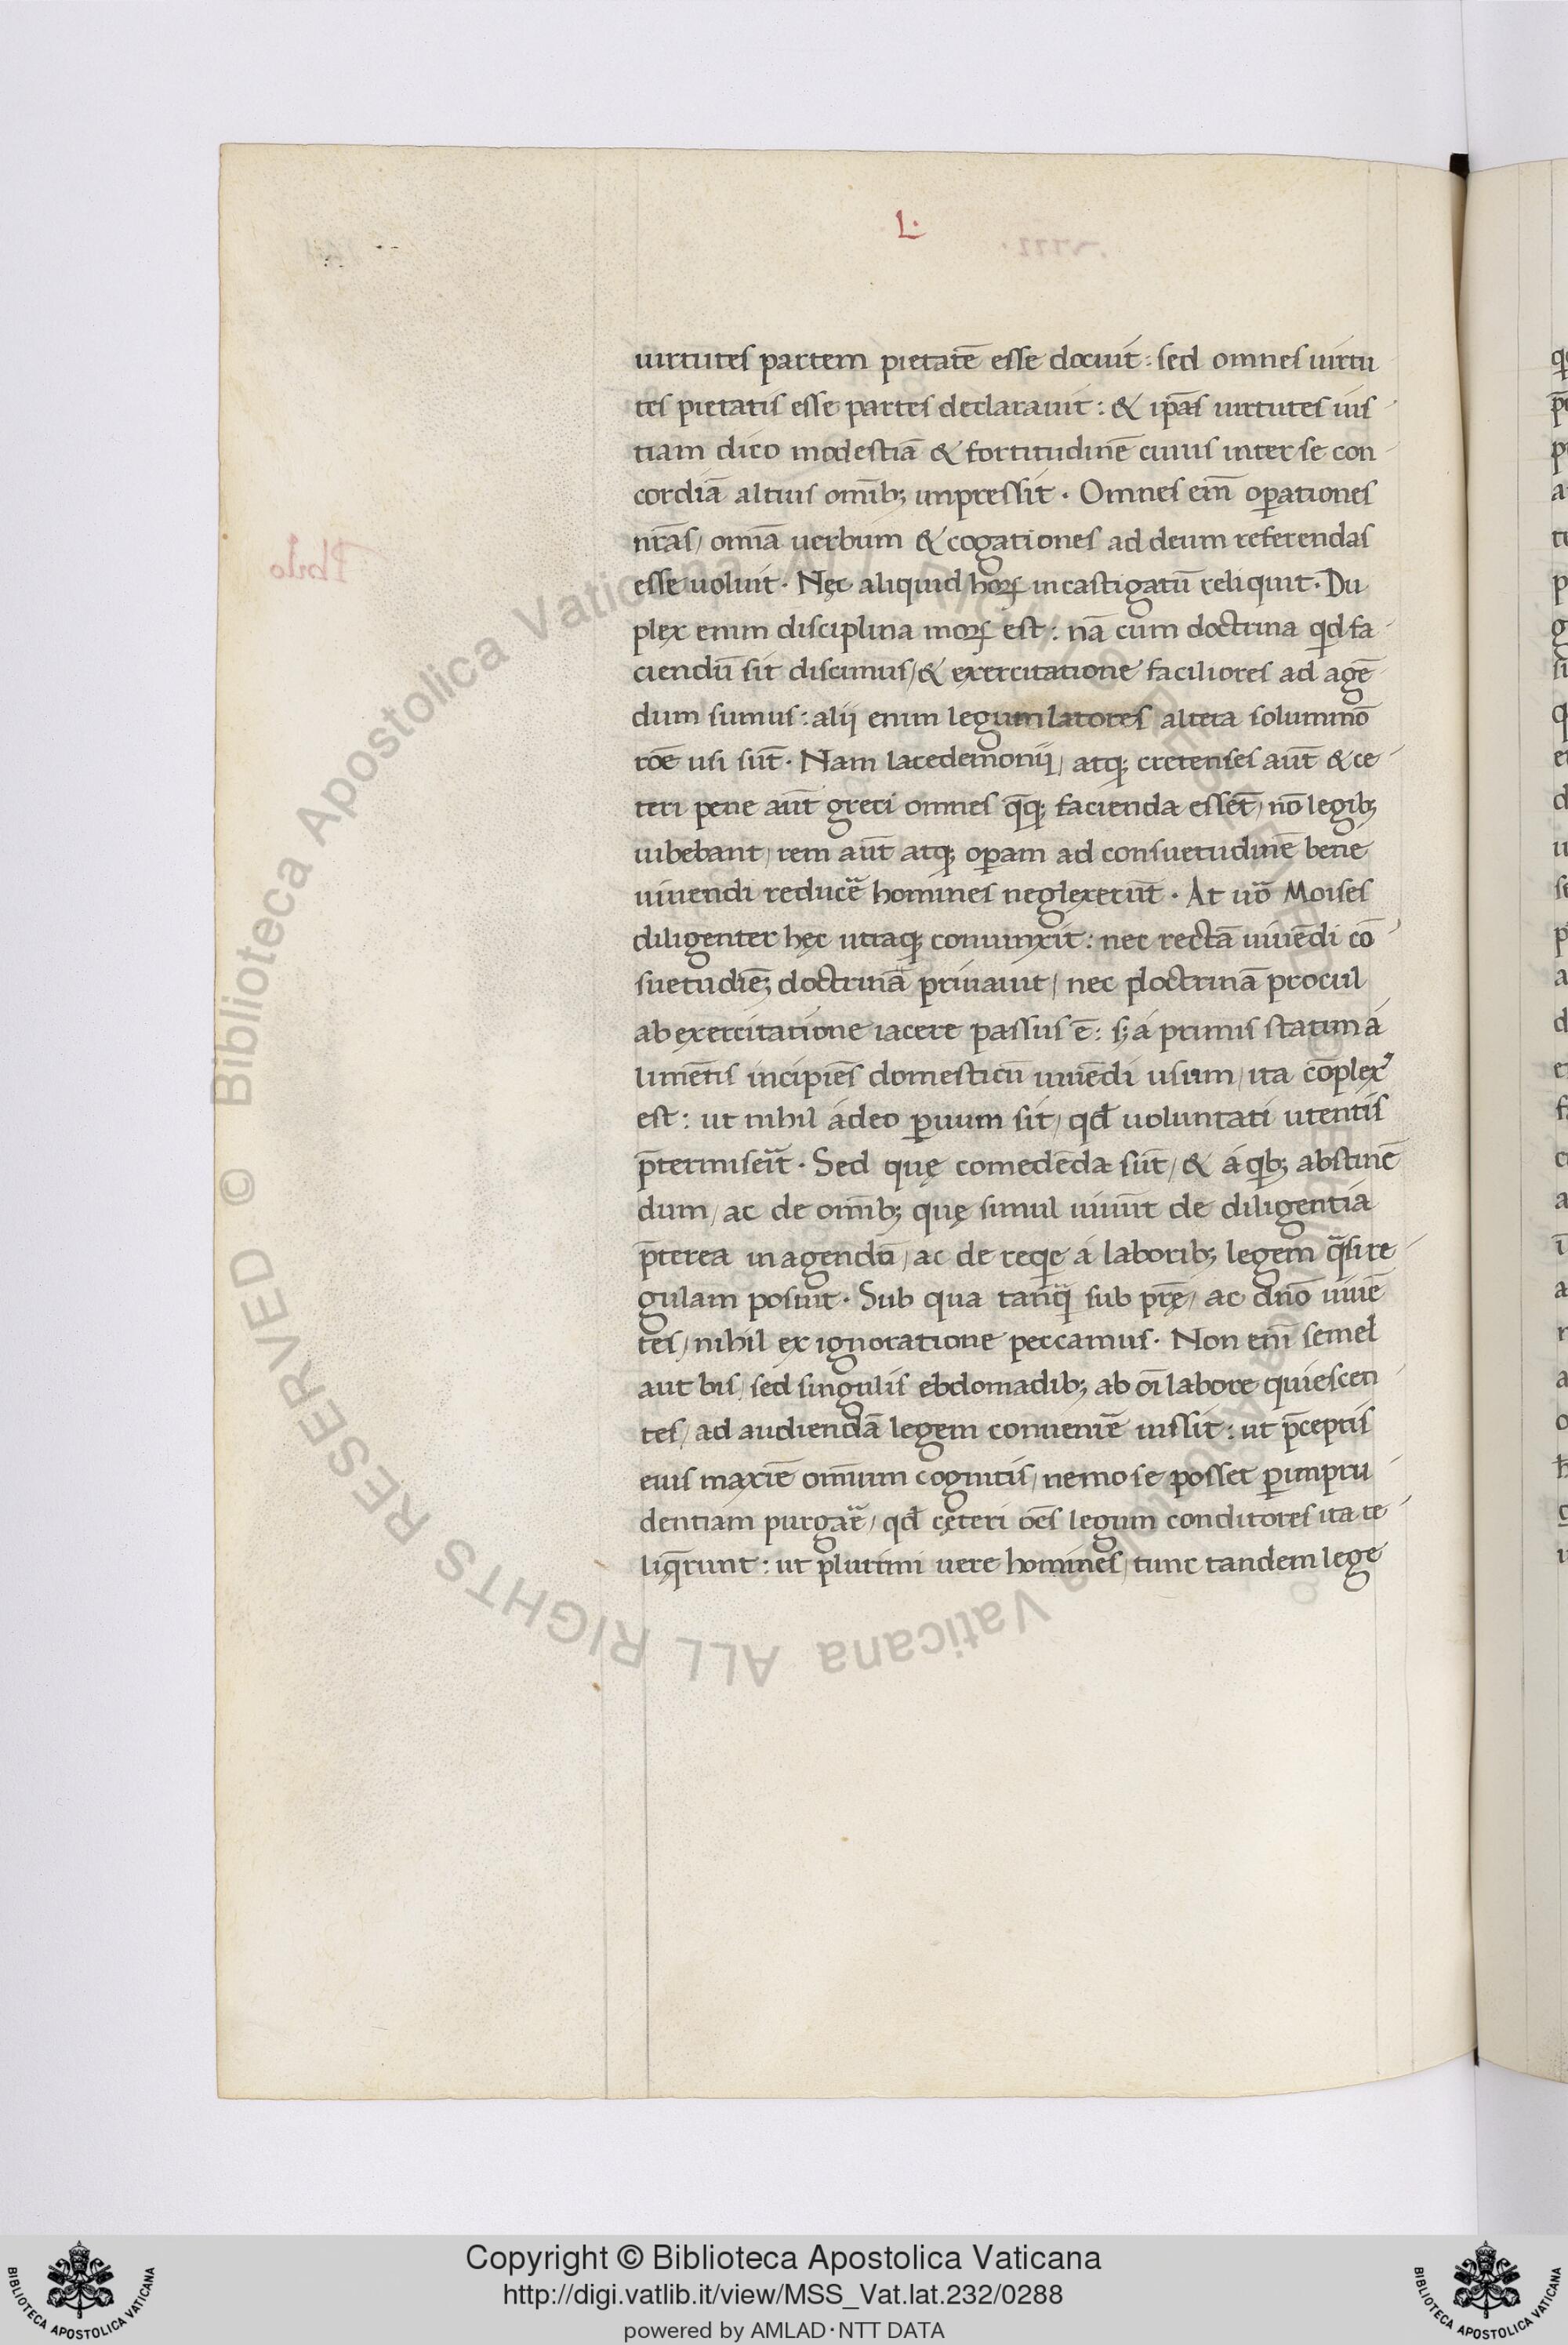 L·
uirtutes partem pietatē esse docuit: sed omnes uirtu
tes pietatis esse partes declarauit: & ip̄as uirtutes ius
tiam dico modestiā & fortitudinē ciuius inter se con
cordiā altius om̄ib; impressit. Omnes em̄ oꝑationes
nr̄as/ omnā uerbum & cogationes ad deum referendas
esse uoluit. Nęc aliquid hoꝝ incastigatū reliquit. Du
plex enim disciplina moꝝ est: nā cum doctrina qd fa
ciendū sit discimus/ & exercitatione faciliores ad agē
dum sumus: alii enim legum latores altera solummō
rōe usi sūt. Nam lacedemonii/ atq; cretenses aūt & ce
teri pene aūt greci omnes q̄q; facienda essēt/ nō legib;
iubebant/ rem aūt atq; oꝑam ad consuetudinē bene
uiuendi reducē homines neglexerūt. At uō Moises
diligenter hęc utraq; coniunxit: nec rectā uiuēdi cō
suetudiē; doctrinā priuauit/ nec ꝑdoctrinā procul
ab exercitatione iacere passus ē: s; á primis statim á
limētis incipiēs domesticū uiuēdi usum/ ita cōplexꝰ
est: ut nihil ádeo ꝑuum sit/ qd̄ uoluntati utentis
p̄termiserīt. Sed quę comedēda sūt/ & á qb; abstinē
dum/ ac de om̄ib; quę simul uiuūt de diligentia
p̄terea in agendū/ ac de reqie á laborib; legem q̄si re
gulam posuit. Sub qua tanq̄ sub pr̄ę/ ac dn̄o uiuē
tes/ nihil ex ignoratione peccamus. Non em̄ semel
aut bis/ sed singulis ebdomadib; ab oī labore quiescen
tes/ ad audiendā legem conuenīē iussit: ut p̄ceptis
eius maxīe om̄ium cognitis/ nemo se posset ꝑ impru
dentiam purgāē/ qd̄ cęteri oēs legum conditores ita re
liq̄runt: ut plurimi uere homines/ tunc tandem lege
Copyright © Biblioteca Apostolica Vaticana
http://digi.vatlib.it/view/MSS_Vat.lat.232/0288
powered by AMLAD·NTT DATA
© Biblioteca Apostolica Vaticana ALL RIGHTS RESERVED
BIBLIOTECA APOSTOLICA VATICANA
BIBLIOTECA APOSTOLICA VATICANA